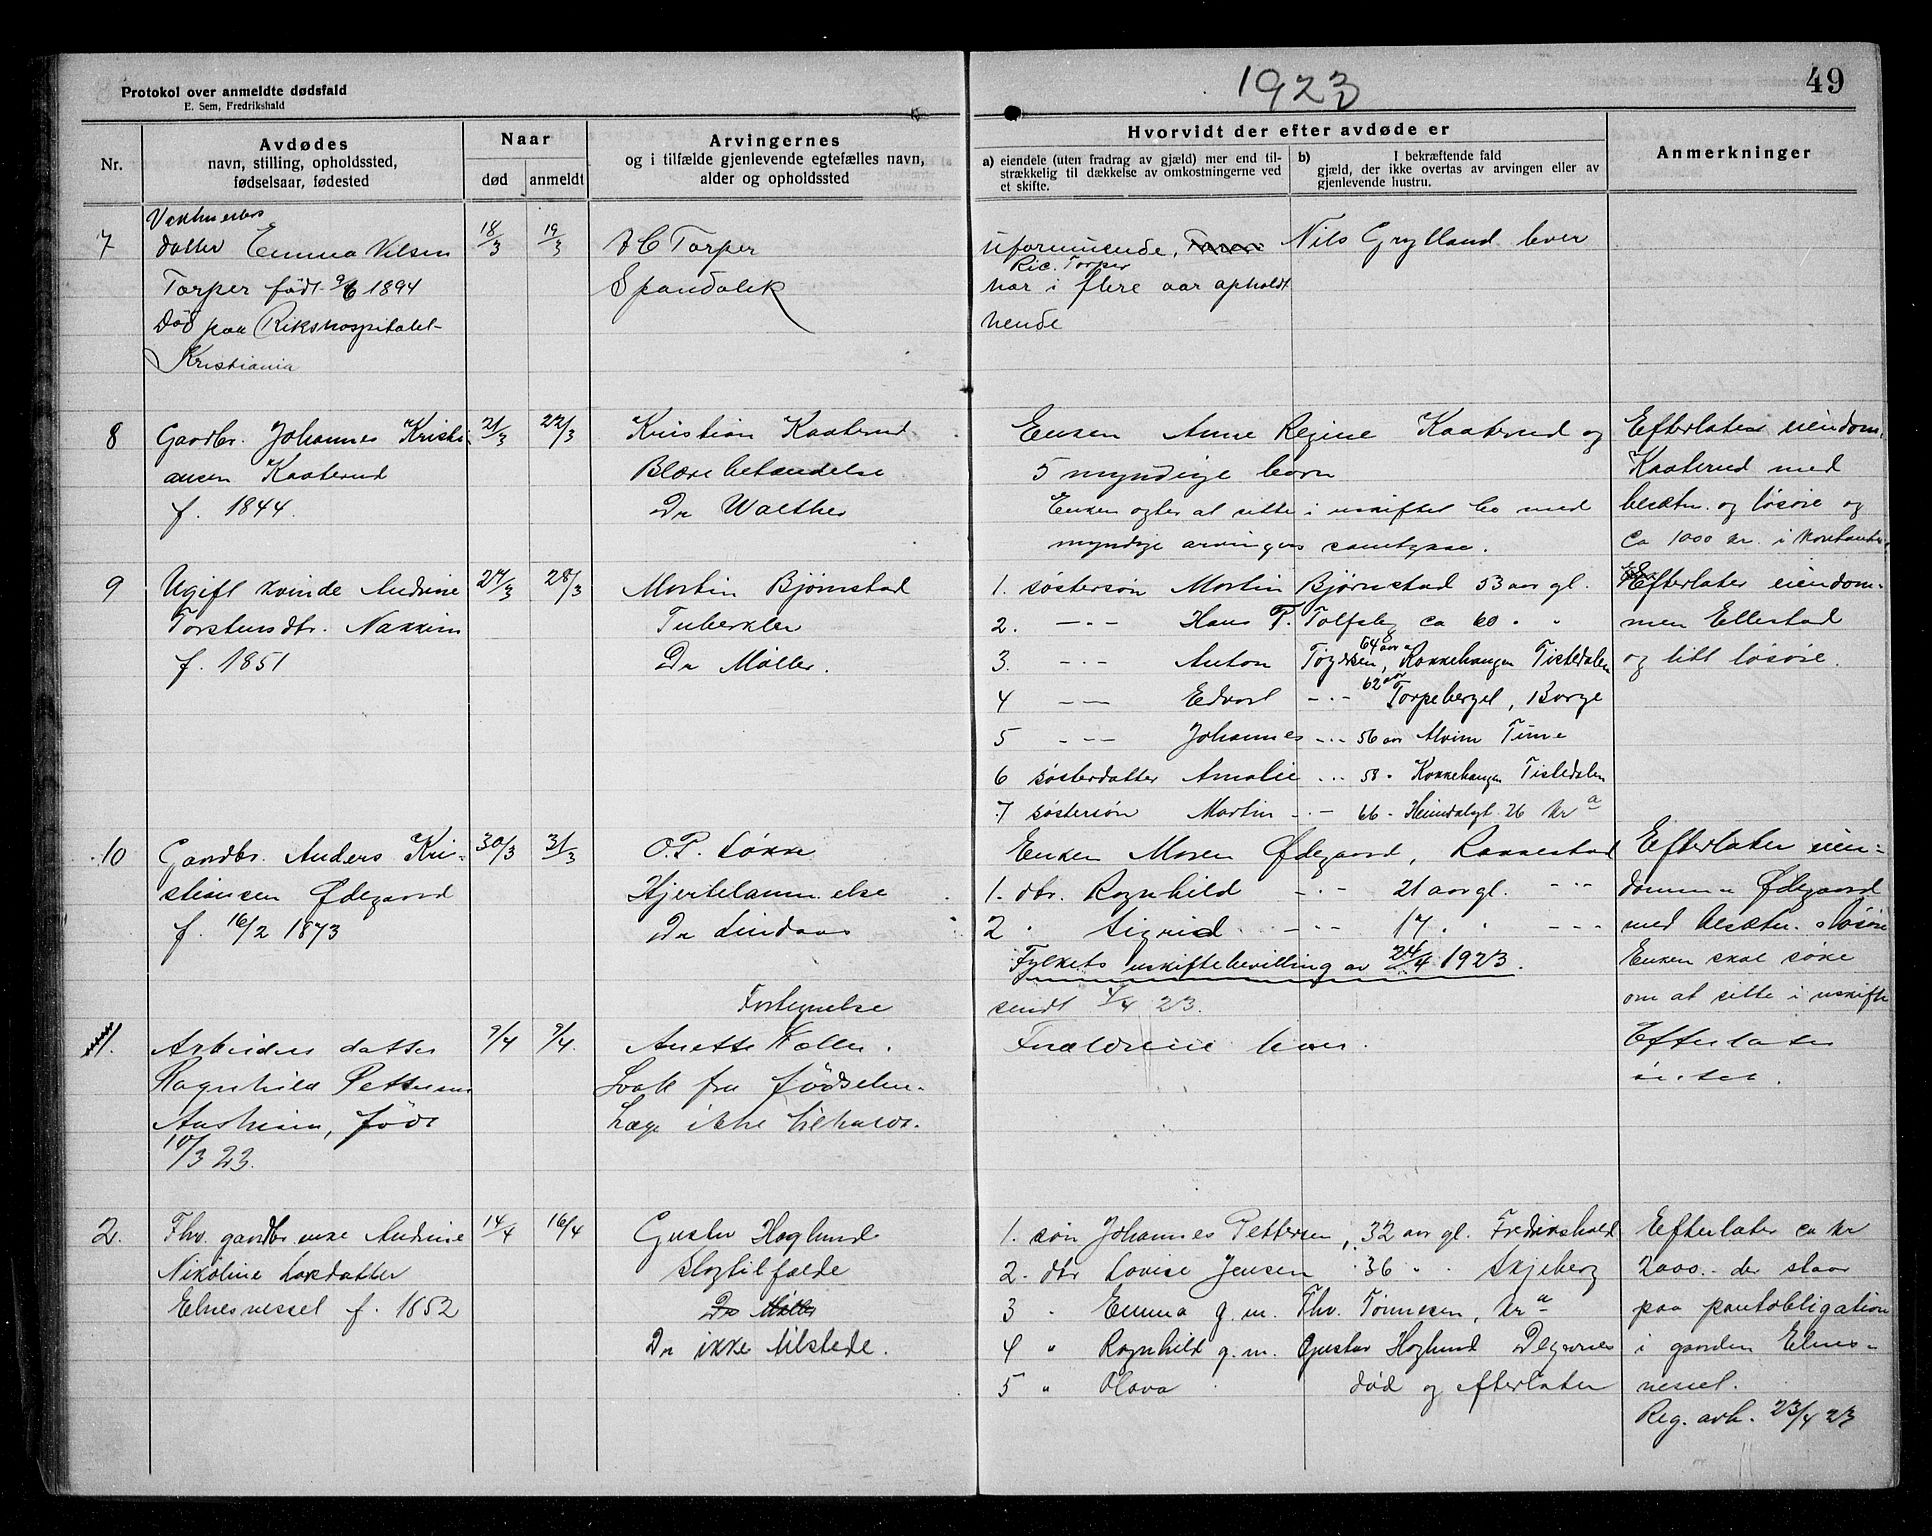 Protokol over anmeldte dødsfald
E. Sem, Fredrikshald
1923
49
Nr.
Avdødes
navn, stilling, opholdssted,
fødselsaar, fødested
Naar
død
anmeldt
Arvingernes
og i tilfælde gjenlevende egtefælles navn,
alder og opholdssted
Hvorvidt der efter avdøde er
a) eiendele (uten fradrag av gjæld) mer end til-
strækkelig til dækkelse av omkostningerne ved
et skifte.
b) I bekræftende fald
gjæld, der ikke overtas av arvingen eller av
gjenlevende hustru.
Anmerkninger
7
datter Emma Nilsen
Torper født 9/6 1894
Død paa Rikshospitalet
Kristiania
18/3
19/3
Torper
uformuende, Nils Grylland lever
Ric. Torper
har i flere aar opholdt
hende
8
Gaardbr. Johannes Kristi-
ansen Kaaterud
f. 1844.
21/3
22/3
Kristian Kaaterud
Blærebetændelse
Dr Walther
Enken Anne Regine Kaaterud og
5 myndige børn
Enken agter at sitte i uskiftet bo med
myndige arvingers samtykke.
Efterlater eiendom.
Kaaterud med
besætn. og løsøre og
ca 1000 kr. i kontanter.
9
Ugift kvinde Andrine
Torstensdtr. Nakkim
f. 1851
27/3
28/3
Martin Bjørnstad
Tuberkler
Dr Møller.
1. søstersøn Martin Bjørnstad 53 aar gl.
2. -·- Hans P. Tolfsby ca 60 " "
3. -·- Anton 64 aar, Kokkehaugen Tistedalen
4 -·- Edvart -·- 62 aar Torpeberget, Borge
5 -·- Johannes -·- 56 aar Alvim Tune
6 søsterdatter Amalie -·- 58 " Kokkehaugen Tistedalen
7 søstersøn Martin -·- 66 " Heimdalsgt. 26 Kr a
Efterlater eiendom-
men Ellestad
og litt løsøre.
10
Gaardbr. Anders Kri-
stiansen Ødegaard
f. 16/2 1873
30/3
31/3
O.P. Løkke
Hjertelammelse
Dr Lindaas
Enken Maren Ødegaard, Rakkestad
1. dtr. Ragnhild -·- 21 aar gl. -·-
2 " Sigrid -·- 17 " " -·-
Fylkets uskiftebevilling av 24/4 1923.
sendt 1/4 23.
Efterlater eien-
dommen Ødegaard
med besætn. & løsøre
Enken skal søke
om at sitte i uskifte
Fortegnelse
11.
Arbeiders datter
Ragnhild Pettersen
Aasheim, født
10/3 23.
9/4
9/4.
Anette
Svak fra fødselen.
Læge ikke tilkaldt.
Forældrene lever.
Efterlater
intet.
2.
Fhv. gaardbr. enke Andrine
Nikoline Larsdatter
Elnesvessel f. 1852
14/4
16/4
Gustav Haglund
Slagtilfælde
Dr Møller
Dr ikke tilstede.
1. søn Johannes Pettersen, 32 aar gl. Fredrikshald
2. dtr Lovise Jensen 36 " " Skjeberg
3 " Emma g.m. Thv. Tønnesen, Kr a
4 " Ragnhild g.m. Gustav Haglund Degernes
5 " Olava død og efterlater
Efterlater ca kr
2000.- der staar
paa pantobligation
i gaarden Elnes-
vessel.
Reg. avh. 23/4 23